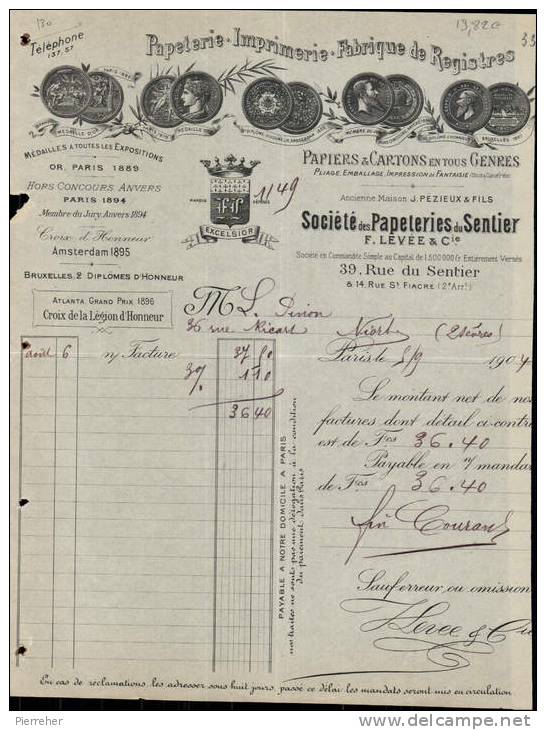 130
13,82€
Téléphone
137,57
Papeterie - Imprimerie - Fabrique de Registres
MÉDAILLES À TOUTES LES EXPOSITIONS
OR. PARIS 1889
HORS CONCOURS ANVERS
PARIS 1894
Membre du Jury, Anvers 1894
Croix d'Honneur
Amsterdam 1895
BRUXELLES, 2 DIPLÔMES D'HONNEUR
ATLANTA GRAND PRIX 1896
Croix de la Légion d'Honneur
1149
MARQUE DÉPOSÉE
EXCELSIOR
PAPIERS & CARTONS EN TOUS GENRES
PLIAGE, EMBALLAGE, IMPRESSION DE FANTAISIE
Ancienne Maison J. PEZIEUX & FILS
Société des Papeteries du Sentier
F. LEVÉE & Cie
Société en Commandite Simple au Capital de 1.500.000 Fr. Entièrement Versés
39, Rue du Sentier
& 14, RUE ST FIACRE (2e Arrt)
M L. Pinion
36 rue Ricart Niort (2 Sèvres)
Paris le 5/9 1904
août 6 n/ Facture 37 50
3% 1 10
36 40
Le montant net de nos
factures dont détail ci-contre
est de Fcs 36.40
Payable en n/ mandat
de Fcs 36.40
fin Courant
Sauf erreur ou omission
F. Levée & Cie
PAYABLE A NOTRE DOMICILE A PARIS
nos traites ne sont pas une dérogation à la condition
du paiement dans Paris
En cas de réclamations, les adresser sous huit jours, passé ce délai les mandats seront mis en circulation
Pierreher
www.delcampe.net